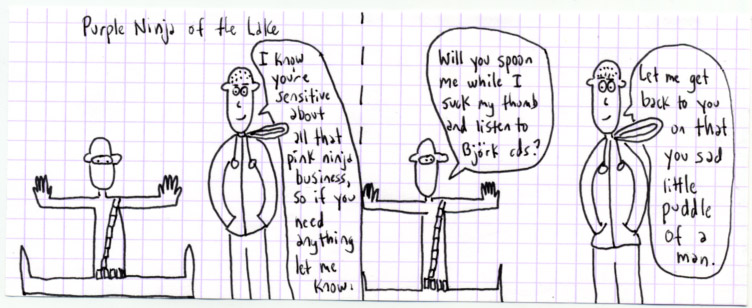 Purple Ninja of the Lake
I know
you're
sensitive
about
all that
pink ninja
business,
so if you
need
anything
let me
know.
Will you spoon
me while I
suck my thumb
and listen to
Björk cds?
Let me get
back to you
on that
you sad
little
puddle
of a
man.